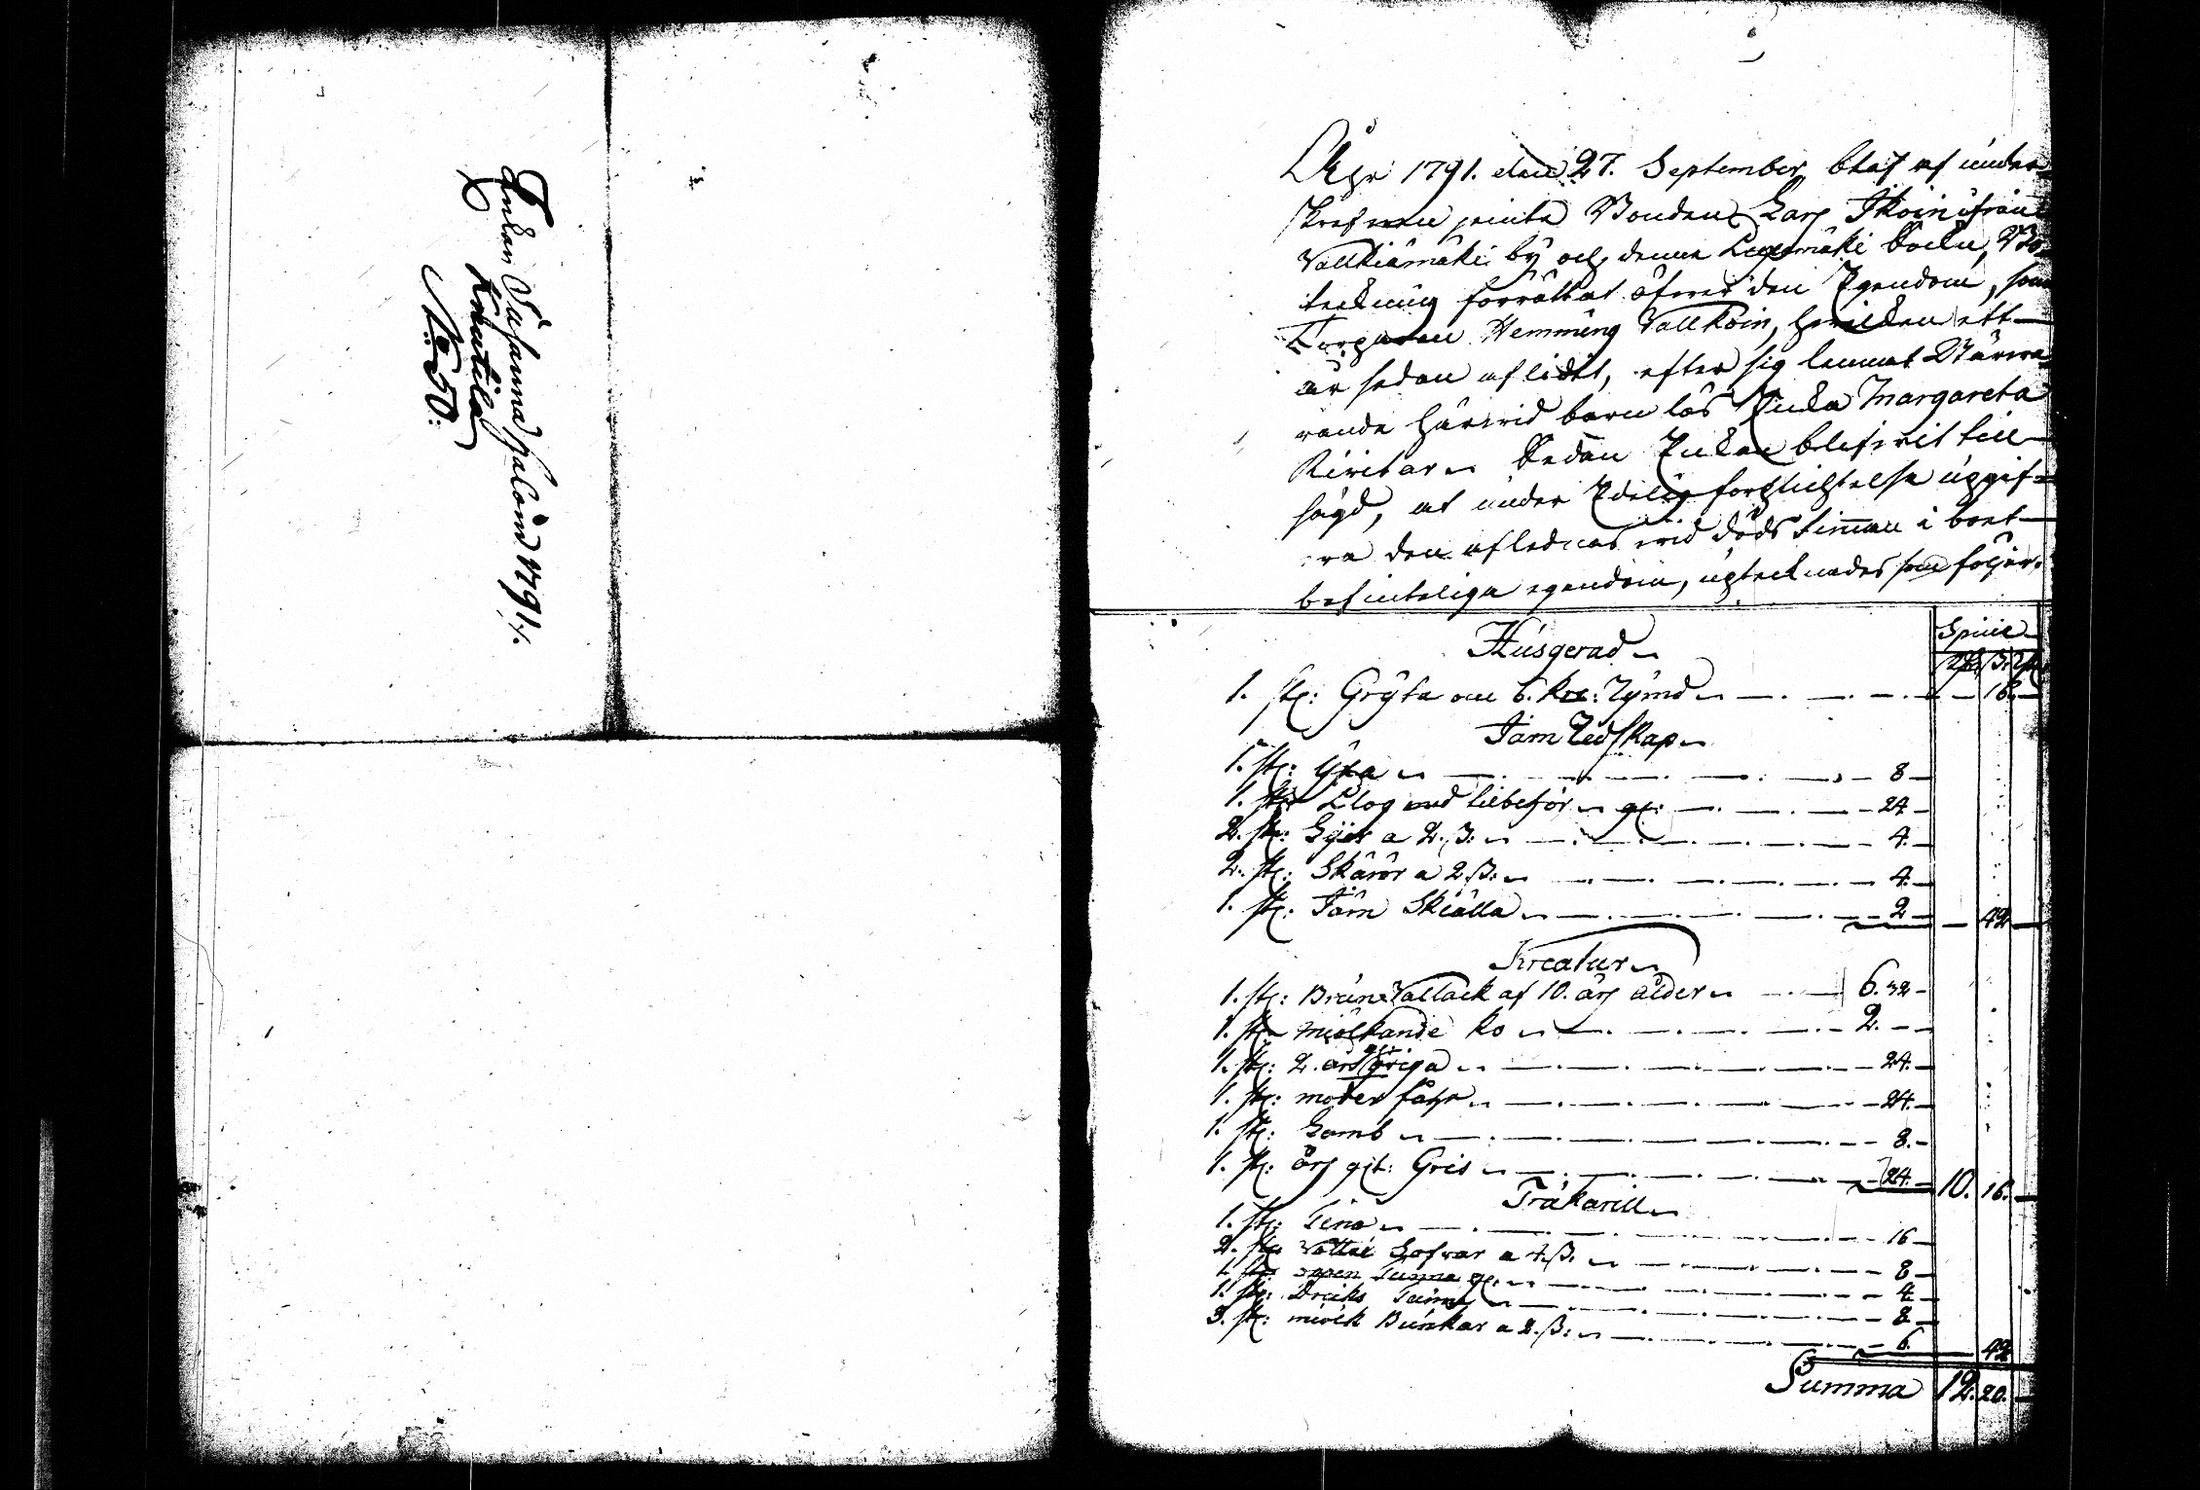 Enkan Susanna Haloin 1791.
Kontila
No 50.
Åhr 1791. den 27. September, blef af under-
skrefven jemte Bonden Lars Ikoin ifrån
Vallkiämäki by och denne Sockn, Bo-
teckning förrättat öfver den Egendom, som
Torparen Hemming Vallkoin, hvilken ett
år sedan aflidit, efter sig lemnat Närva-
rande härvid barnlös Enka Margareta
Kivitar. Sedan Enkan blifvit till-
sagd, at under Edelig förplichtelse uppgif-
va den aflednas vid döds timman i boet
befinteliga egendom, uptecknades som följer.
Husgerad
Specie
Rd. ß. r.
1. st: Gryta om 6. kr: Rymd 16.
Järn Redskap
1. st: Yxa 8
1. st: Plog med tilbehör gl: 24
2. st: Lyer a 2. ß: 4.
2. st: Skäror a 2 ß: 4.
1. st: Järn Skiälla 2 42
Kreatur
1. st: Brun Vallack af 10. års ålder 6. 32
1. st: miölkande ko 2.
1. st: 2. års qviga 24.
1. st: moder fåhr 24.
1. st: Lamb 8.
1. st: års glt: Gris 24. 10. 16.
Träkärill
1. st: Tina 16
2. st: Vatten Sofvar a 4 ß: 8
1. st: Tunna gl: 4
1. st: Dricks Tunna 8
3. st: miölk Bunkar a 2. ß: 6. 42
Summa 12. 20.